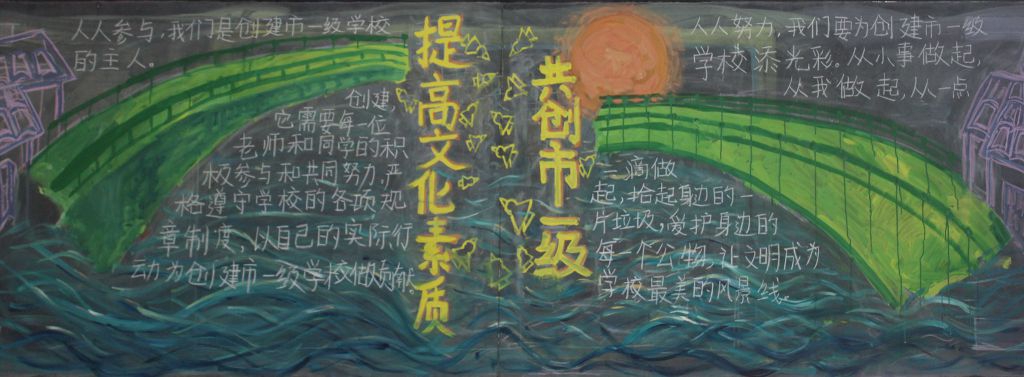 人人参与,我们是创建市一级学校
的主人。
创建,
它需要每一位
老师和同学的积
极参与和共同努力,严
格遵守学校的各项规
章制度、以自己的实际行
动为创建市一级学校做贡献
提高文化素质
共创市一级
人人努力,我们要为创建市一级
学校添光彩。从小事做起,
从我做起,从一点
一滴做
起,拾起身边的一
片垃圾,爱护身边的
每一个公物,让文明成为
学校最美的风景线。